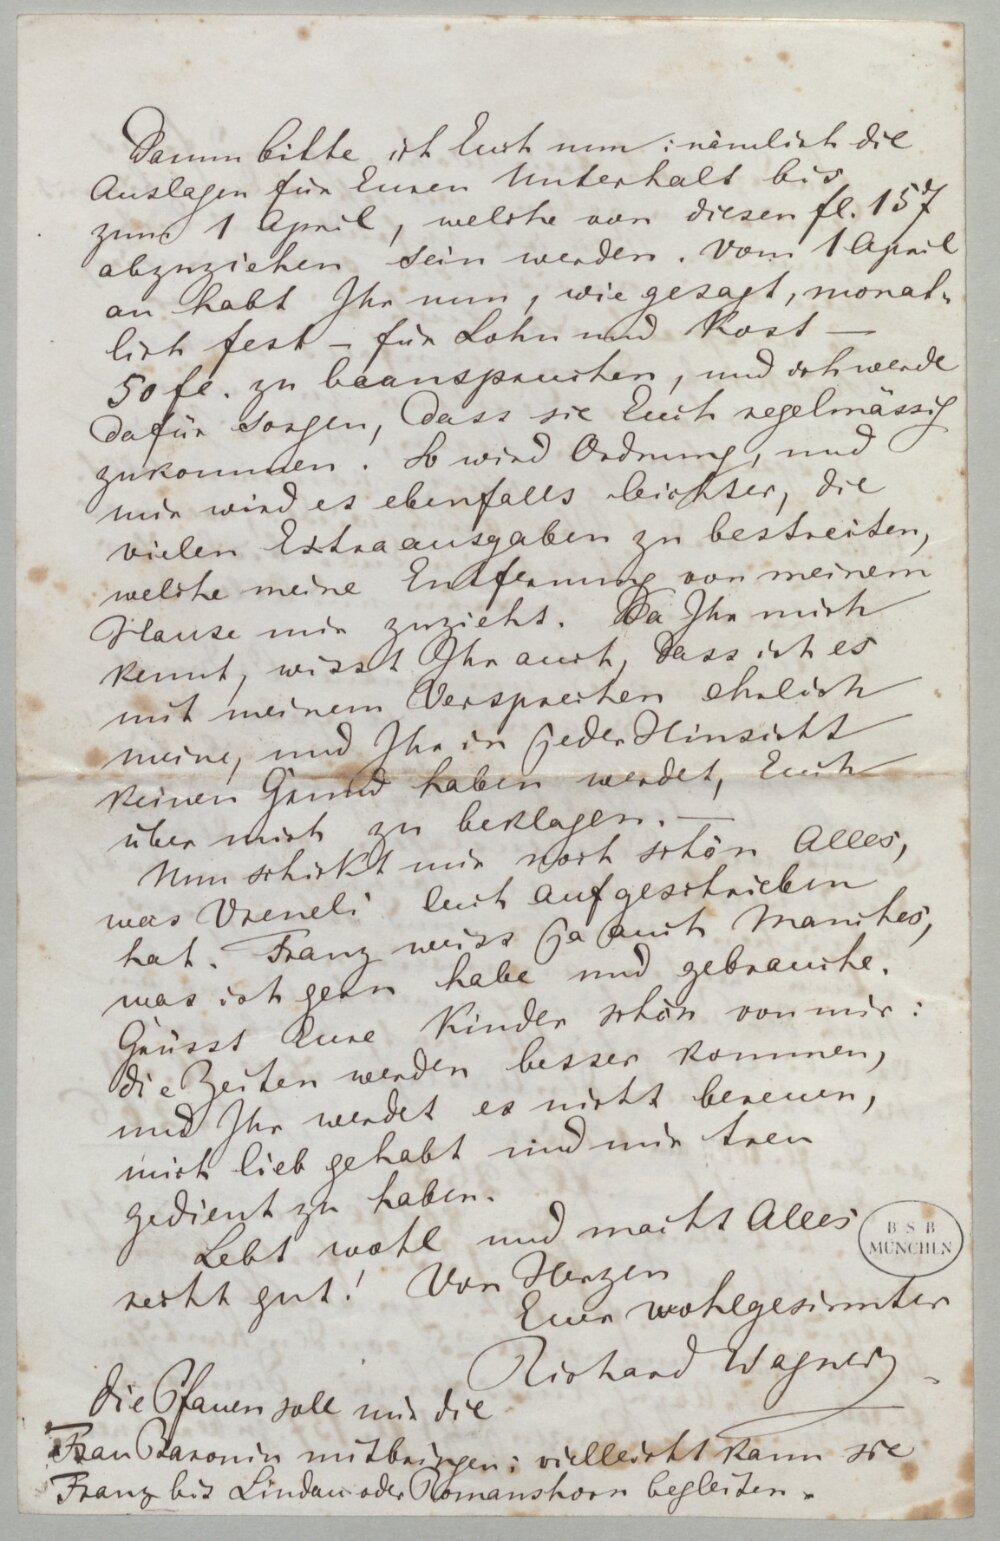 Darum bitte ich Euch nun: nämlich die
Auslagen für Euren Unterhalt bis
zum 1 April, welche von diesen fl. 157
abzuziehen sein werden. Vom 1 April
an habt Ihr nun, wie gesagt, monat-
lich fest – für Lohn und Kost –
50 fl. zu beanspruchen, und ich werde
dafür sorgen, dass sie Euch regelmässig
zukommen. So wird Ordnung, und
mir wird es ebenfalls leichter, die
vielen Extraausgaben zu bestreiten,
welche meine Entfernung von meinem
Hause mir zuzieht. Da Ihr mich
kennt, wisst Ihr auch, dass ich es
mit meinem Versprechen ehrlich
meine, und Ihr in jeder Hinsicht
keinen Grund haben werdet, Euch
über mich zu beklagen. –
Nun schickt mir noch schön Alles,
was Vreneli Euch aufgeschrieben
hat. Franz weiss ja auch Manches,
was ich gern habe und gebrauche.
Grüsst Eure Kinder schön von mir:
die Zeiten werden besser kommen,
und Ihr werdet es nicht bereuen,
mich lieb gehabt und mir treu
gedient zu haben.
Lebt wohl und macht Alles
recht gut! Von Herzen
Euer wohlgesinnter
Richard Wagner
B S B
MÜNCHEN
Die Pfauen soll mir die
Frau Baronin mitbringen: vielleicht kann sie
Franz bis Lindau oder Romanshorn begleiten.